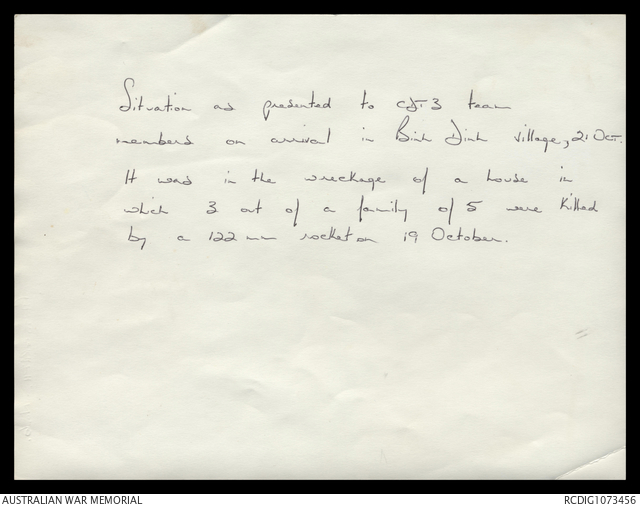 Situation as presented to CJ-3 team
members on arrival in Binh Dinh village, 21 Oct.
It was in the wreckage of a house in
which 3 out of a family of 5 were killed
by a 122 mm rocket on 19 October.
AUSTRALIAN WAR MEMORIAL RCDIG1073456